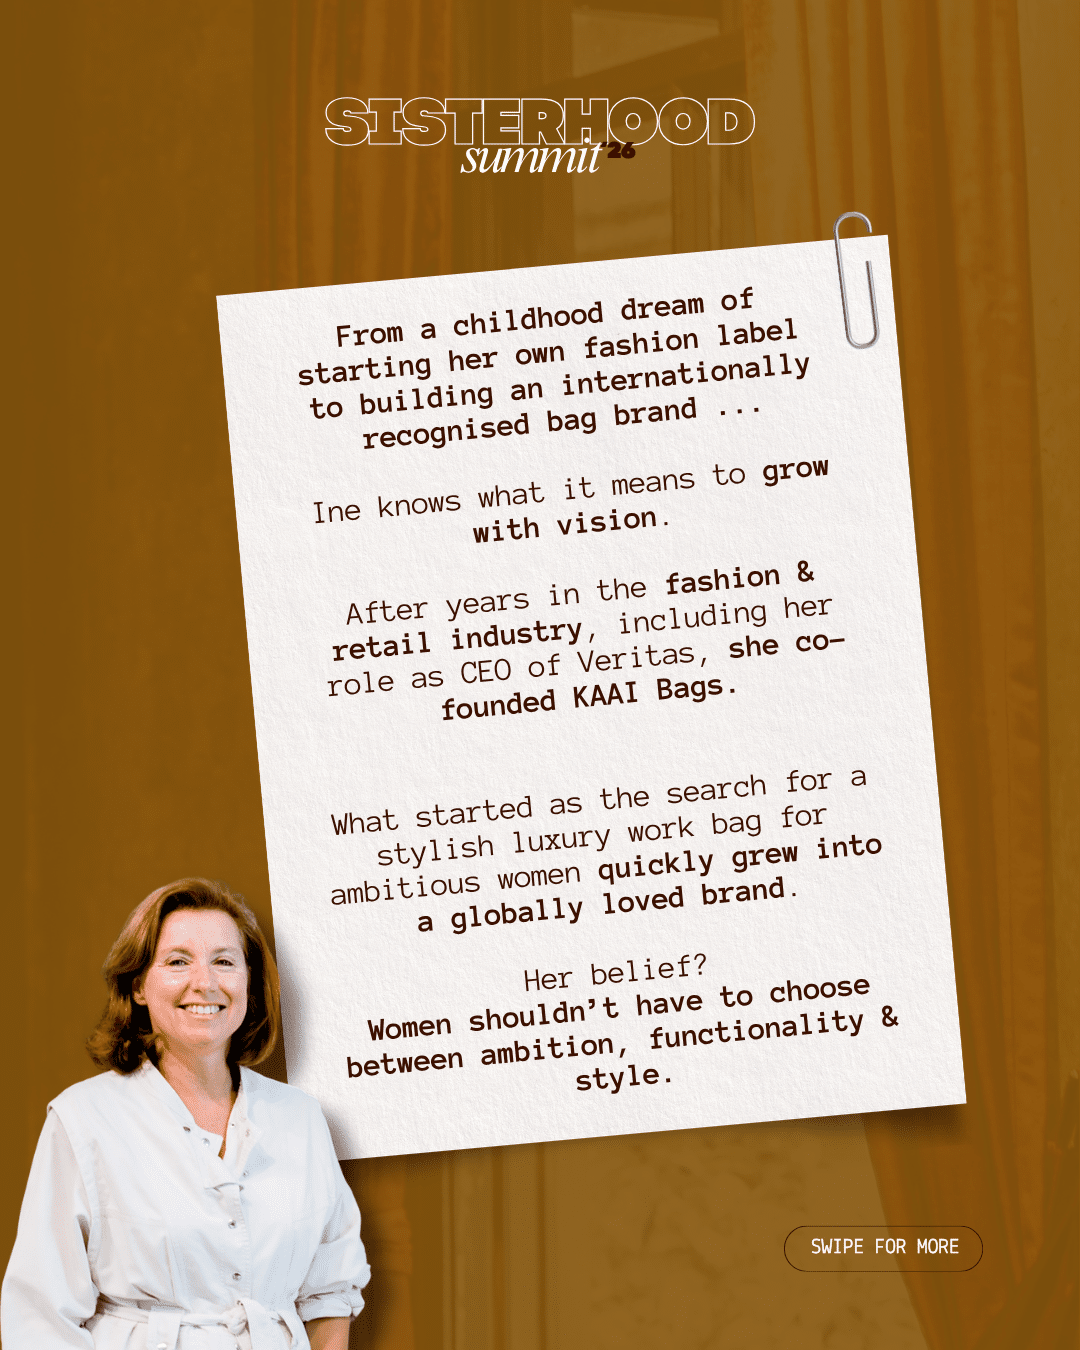 SISTERHOOD
summit '26
From a childhood dream of
starting her own fashion label
to building an internationally
recognised bag brand ...
Ine knows what it means to grow
with vision.
After years in the fashion &
retail industry, including her
role as CEO of Veritas, she co-
founded KAAI Bags.
What started as the search for a
stylish luxury work bag for
ambitious women quickly grew into
a globally loved brand.
Her belief?
Women shouldn’t have to choose
between ambition, functionality &
style.
SWIPE FOR MORE